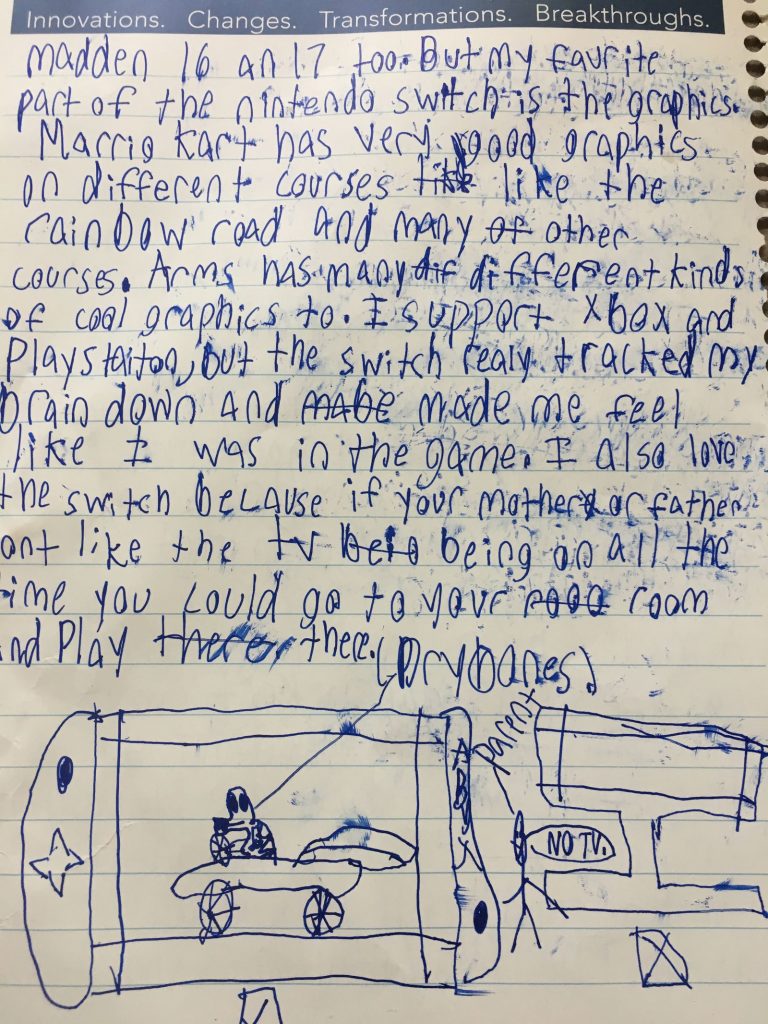 Innovations. Changes. Transformations. Breakthroughs.
madden 16 an 17 too. But my favrite
part of the nintendo switch is the graphics.
Marrio kart has very good graphics
on different courses like the
rainbow road and many of other
courses. Arms has many dif different kinds
of cool graphics to. I support Xbox and
Playstaitoo, but the switch realy tracked my
brain down and mabe made me feel
like I was in the game. I also love
the switch because if your mother or father
ont like the tv beio being on all the
ime you could go to your rooo room
nd Play there, there. (Dry bones)
parent
NO TV.